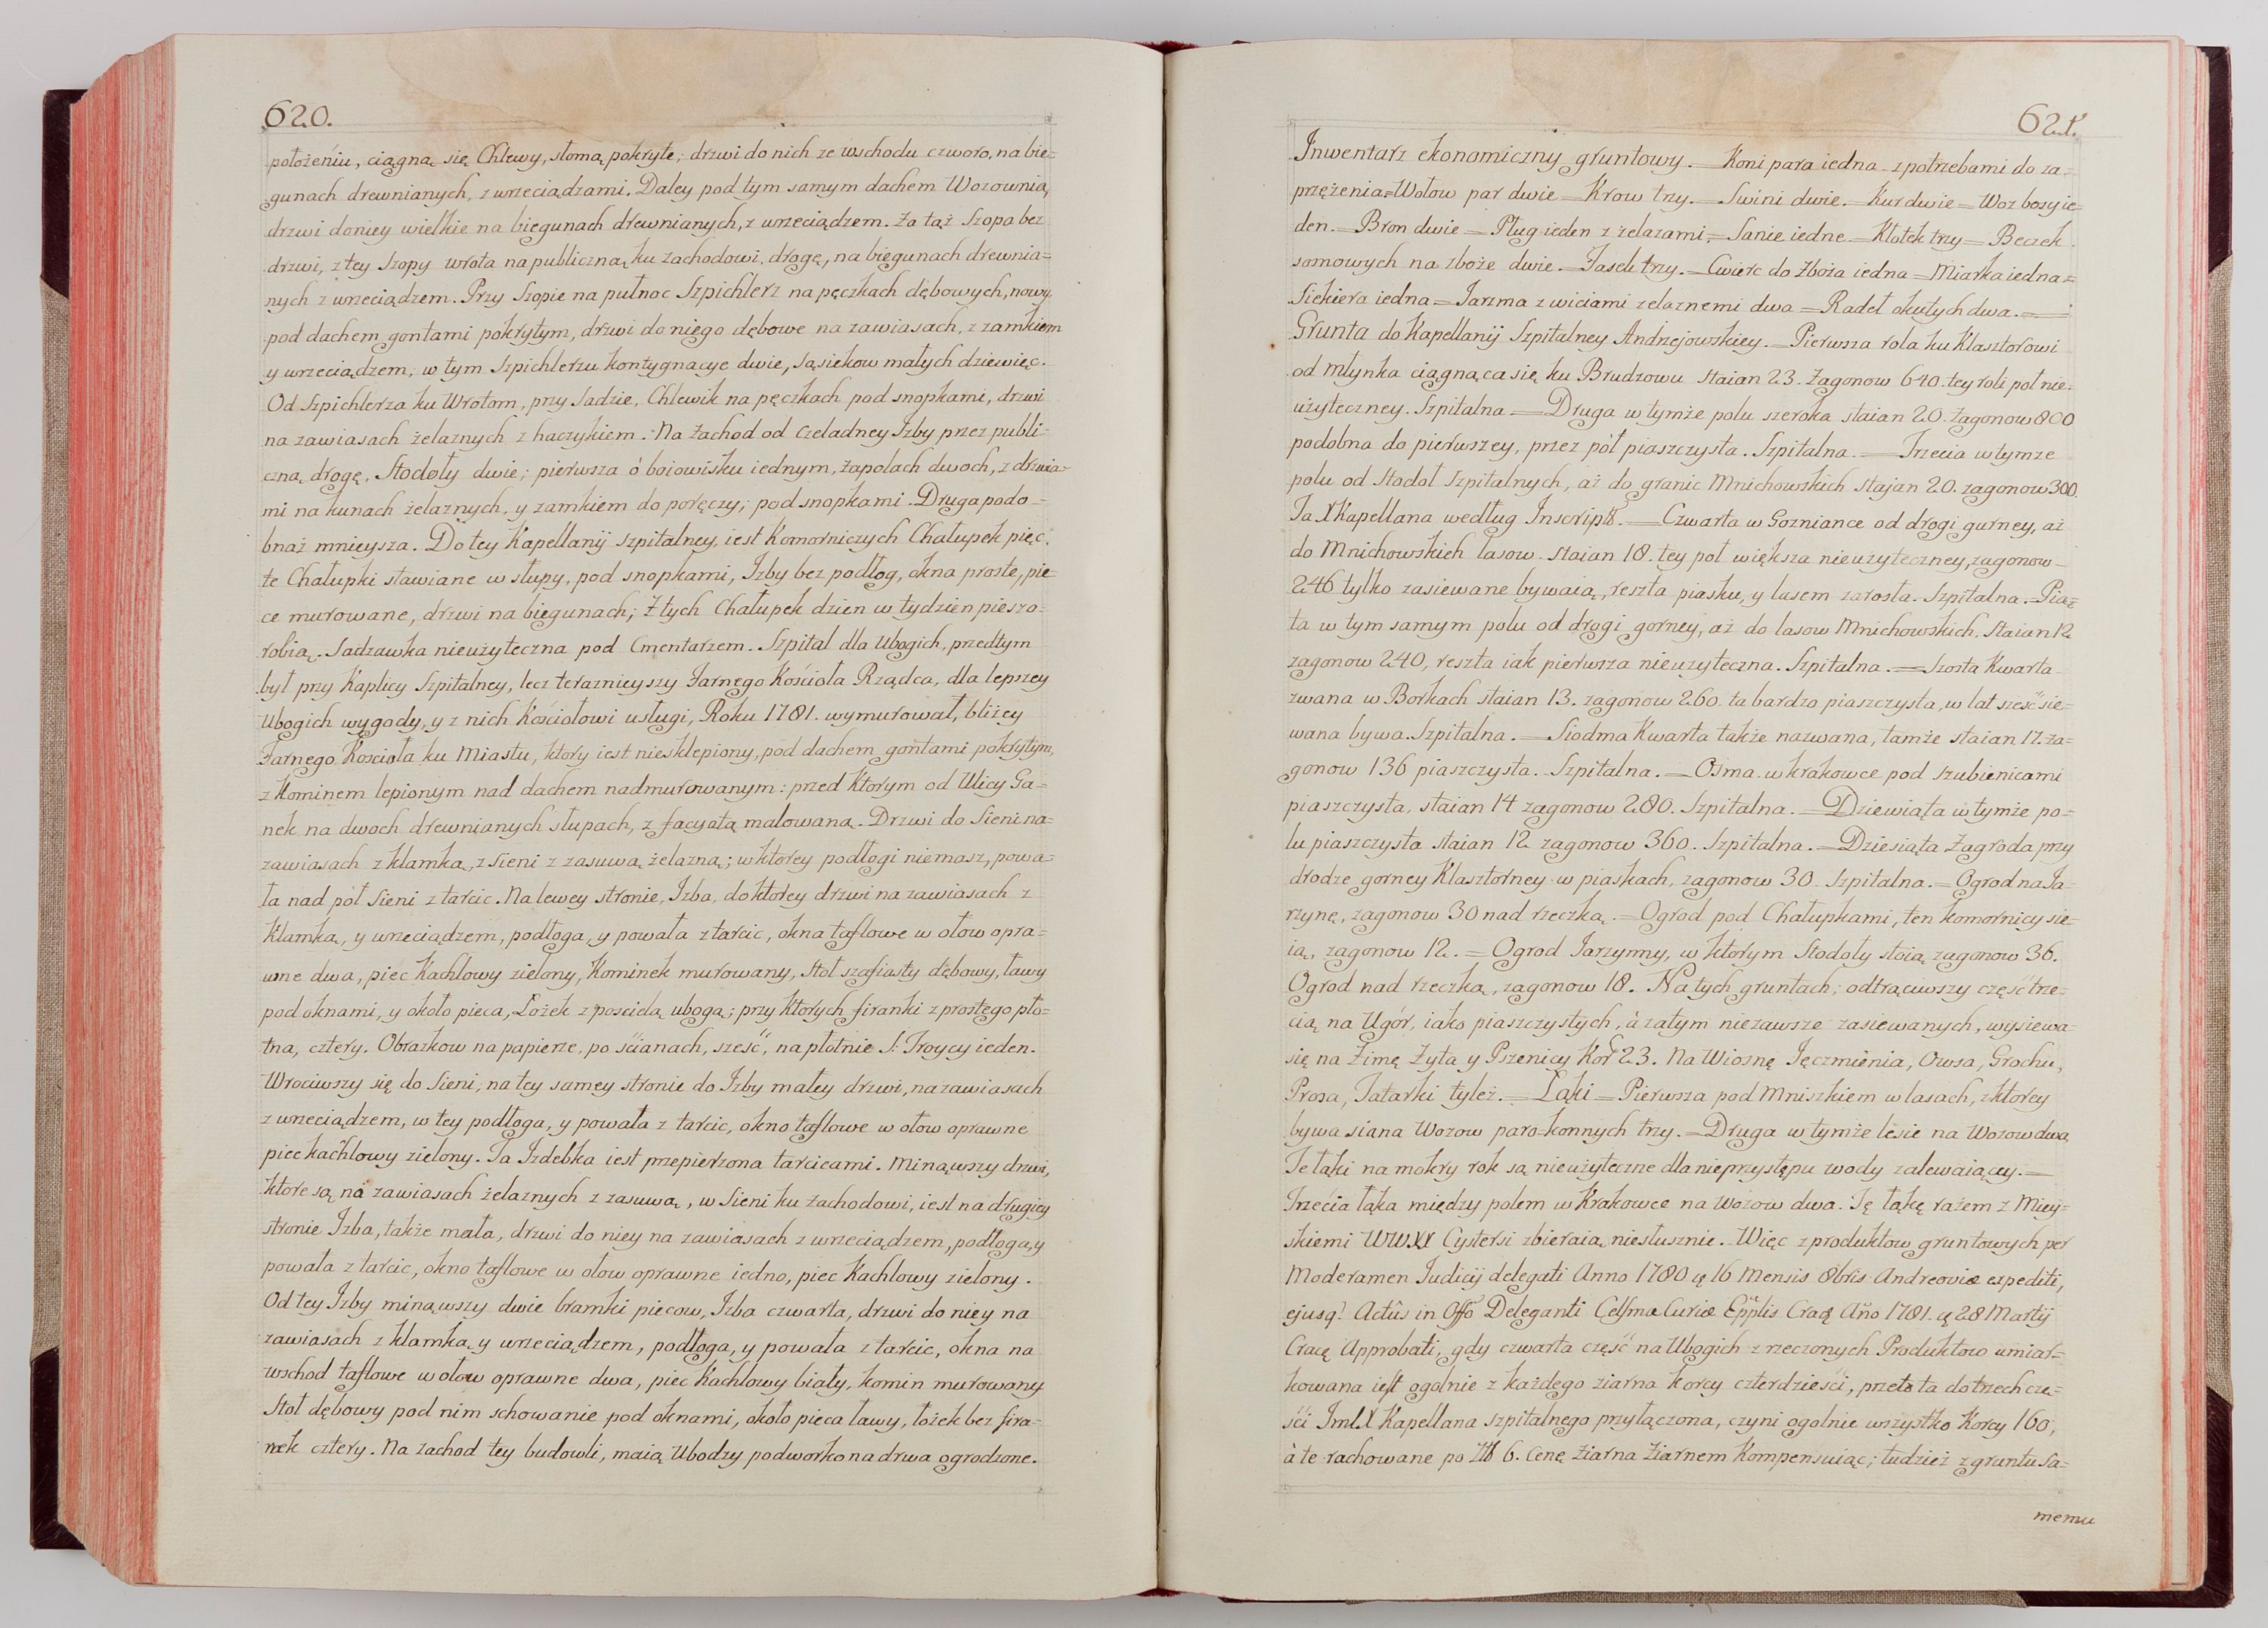 620.
położeniu, ciągną się Chlewy, słomą pokryte; drzwi do nich ze wschodu czworo, na bie=
gunach drewnianych, z wrzeciądzami. Daley pod tym samym dachem Wozownia,
drzwi doniey wielkie na biegunach drewnianych, z wrzeciądzem. Za tąż Szopa bez
drzwi, z tey Szopy wrota na publiczną ku zachodowi drogę, na biegunach drewnia=
nych z wrzeciądzem. Przy Szopie na pułnoc Szpichlerz na pęczkach dębowych, nowy,
pod dachem gontami pokrytym, drzwi do niego dębowe na zawiasach, z zamkiem
y wrzeciądzem, w tym Szpichlerzu kontygnacye dwie, sąsiekow małych dziewięc.
Od Szpichlerza ku Wrotom, przy Sadzie, Chlewik na pęczkach pod snopkami, drzwi
na zawiasach żelaznych z haczykiem. Na Zachod od Czeladney Izby przez publi=
czną drogę, Stodoły dwie; pierwsza ò boiowisku iednym, zapolach dwoch, z drzwia=
mi na kunach żelaznych, y zamkiem do poręczy; pod snopkami. Druga podo=
bnaż mnieysza. Do tey Kapellanij Szpitalney, iest Komorniczych Chałupek pięc,
te Chałupki stawiane w słupy, pod snopkami, Izby bez podłog, okna proste, pie=
ce murowane, drzwi na biegunach; Z tych Chałupek dzien w tydzien pieszo=
robią. Sadzawka nieużyteczna pod Cmentarzem. Szpital dla Ubogich, przedtym
był przy Kaplicy Szpitalney, lecz teraznieyszy Farnego Kościoła Rządca, dla lepszey
Ubogich wygody, y z nich Kościołowi usługi, Roku 1781. wymurował, bliżey
Farnego Kościoła ku Miastu, ktory iest niesklepiony, pod dachem gontami pokrytym,
z Kominem lepionym nad dachem nadmurowanym: przed Ktorym od Ulicy Ga=
nek na dwoch drewnianych słupach, z facyatą malowaną. Drzwi do Sieni na=
zawiasach z klamką, z Sieni z zasuwą żelazną; w ktorey podłogi niemasz, powa=
ła nad poł Sieni z tarcic. Na lewey stronie, Izba, do ktorey drzwi na zawiasach z
Klamką, y wrzeciądzem, podłoga, y powała z tarcic, okna taflowe w ołow opra=
wne dwa, piec Kachlowy zielony, Kominek murowany, Stoł szafiasty dębowy, ławy
pod oknami, y około pieca, Łożek z poscielą ubogą; przy ktorych firanki z prostego pło=
tna, cztery. Obrazkow na papierze, po ścianach, sześć, na płotnie S: Troycy ieden.
Wrociwszy się do Sieni, na tey samey stronie do Izby małey drzwi, na zawiasach
z wrzeciądzem, w tey podłoga, y powała z tarcic, okno taflowe w ołow oprawne
piec kachlowy zielony. Ta Izdebka iest przepierzona tarcicami. Minąwszy drzwi,
ktore są na zawiasach żelaznych z zasuwą, w Sieni ku zachodowi, iest na drugiey
stronie Izba, także mała, drzwi do niey na zawiasach z wrzeciądzem, podłoga, y
powała z tarcic, okno taflowe w ołow oprawne iedno, piec Kachlowy zielony.
Od tey Izby minąwszy dwie bramki piecow, Izba czwarta, drzwi do niey na
zawiasach z klamką, y wrzeciądzem, podłoga, y powała z tarcic, okna na
wschod taflowe w ołow oprawne dwa, piec Kachlowy biały, komin murowany
Stoł dębowy pod nim schowanie pod oknami, około pieca ławy, łożek bez fira=
nek cztery. Na zachod tey budowli, maią Ubodzy podworko na drwa ogrodzone.
621.
Inwentarz ekonomiczny gruntowy.= Koni para iedna z potrzebami do za=
przężenia= Wołow par dwie= Krow trzy.= Swini dwie.= Kur dwie= Woz bosy ie=
den.= Bron dwie= Pług ieden z żelazami,= Sanie iedne= Kłotek trzy= Beczek
somowych na zboże dwie.= Fasek trzy.= Cwierc do Zboża iedna= Miarka iedna=
Siekiera iedna= Jarzma z wiciami zelaznemi dwa= Radeł okutych dwa.=
Grunta do Kapellanij Szpitalney Andrzejowskiey.= Pierwsza rola ku Klasztorowi
od młynka ciągnąca się ku Brudzowu staian 23. Zagonow 640. tey roli poł nie=
użyteczney. Szpitalna= Druga w tymże polu szeroka staian 20. Zagonow 800
podobna do pierwszey, przez pół piaszczysta. Szpitalna.= Trzecia w tymze
polu od Stodoł Szpitalnych, aż do granic Mnichowskich stajan 20. zagonow 300.
Ta X Kapellana według Inscript.= Czwarta w Gozniance od drogi gurney, aż
do Mnichowskich lasow. staian 18. tey poł większa nieużyteczney, zagonow
246 tylko zasiewane bywaią, reszta piasku, y lasem zarosła. Szpitalna.= Pią=
ta w tym samym polu od drogi gorney, aż do lasow Mnichowskich, Staian 12
zagonow 240, reszta iak pierwsza nieuzyteczna. Szpitalna.= Szosta Kwarta
zwana w Borkach staian 13. zagonow 260. ta bardzo piaszczysta, w lat sześć sie=
wana bywa. Szpitalna.= Siodma Kwarta także nazwana, tamże staian 17. za=
gonow 136 piaszczysta. Szpitalna.= Osma w Krakowce pod szubienicami
piaszczysta, staian 14 zagonow 280. Szpitalna.= Dziewiąta w tymże po=
lu piaszczysta staian 12 zagonow 360. Szpitalna.= Dziesiąta Zagroda przy
drodze gorney Klasztorney w piaskach, zagonow 30. Szpitalna.= Ogrod na Ja=
rzynę, zagonow 30 nad rzeczką.= Ogrod pod Chałupkami, ten komornicy sie=
ią, zagonow 12.= Ogrod Jarzynny, w ktorym Stodoły stoią zagonow 36.
Ogrod nad rzeczką, zagonow 18. Na tych gruntach; odtrąciwszy część trze=
cią na Ugór, iako piaszczystych, à zatym niezawsze zasiewanych, wysiewa
się na Zimę Zyta y Pszenicy Kor 23. Na Wiosnę Jęczmienia, Owsa, Grochu,
Prosa, Tatarki tyleż.= Łąki= Pierwsza pod Mniszkiem w lasach, z ktorey
bywa siana Wozow paro=konnych trzy.= Druga w tymże lesie na Wozow dwa,
Te łąki na mokry rok są nieużyteczne dla nieprzystępu wody zalewaiącey.=
Trzecia łąka między polem w Krakowce na Wozow dwa. Tę łąkę rażem z Miey=
skiemi WWXX Cystersi zbieraią niesłusznie. Więc z produktow gruntowych per
Moderamen Judicij delegati Anno 1780 ą 16 Mensis 8bris Andreoviæ expediti,
ejusq. Actûs in Offo Deleganti Celsmæ Curiæ Epplis Crac Año 1781. ą 28 Martij
Cracę Approbati, gdy czwarta część na Ubogich z rzeczonych Produktow umiar=
kowana iest ogolnie z każdego ziarna korcy czterdzieści, przeto ta do trzech czę=
ści Jml.X Kapellana szpitalnego przyłączona, czyni ogolnie wszystko Korcy 160,
à te rachowane po Zł 6. Cenę Ziarna Ziarnem Kompensuiąc; tudzież z gruntu Sa=
memu